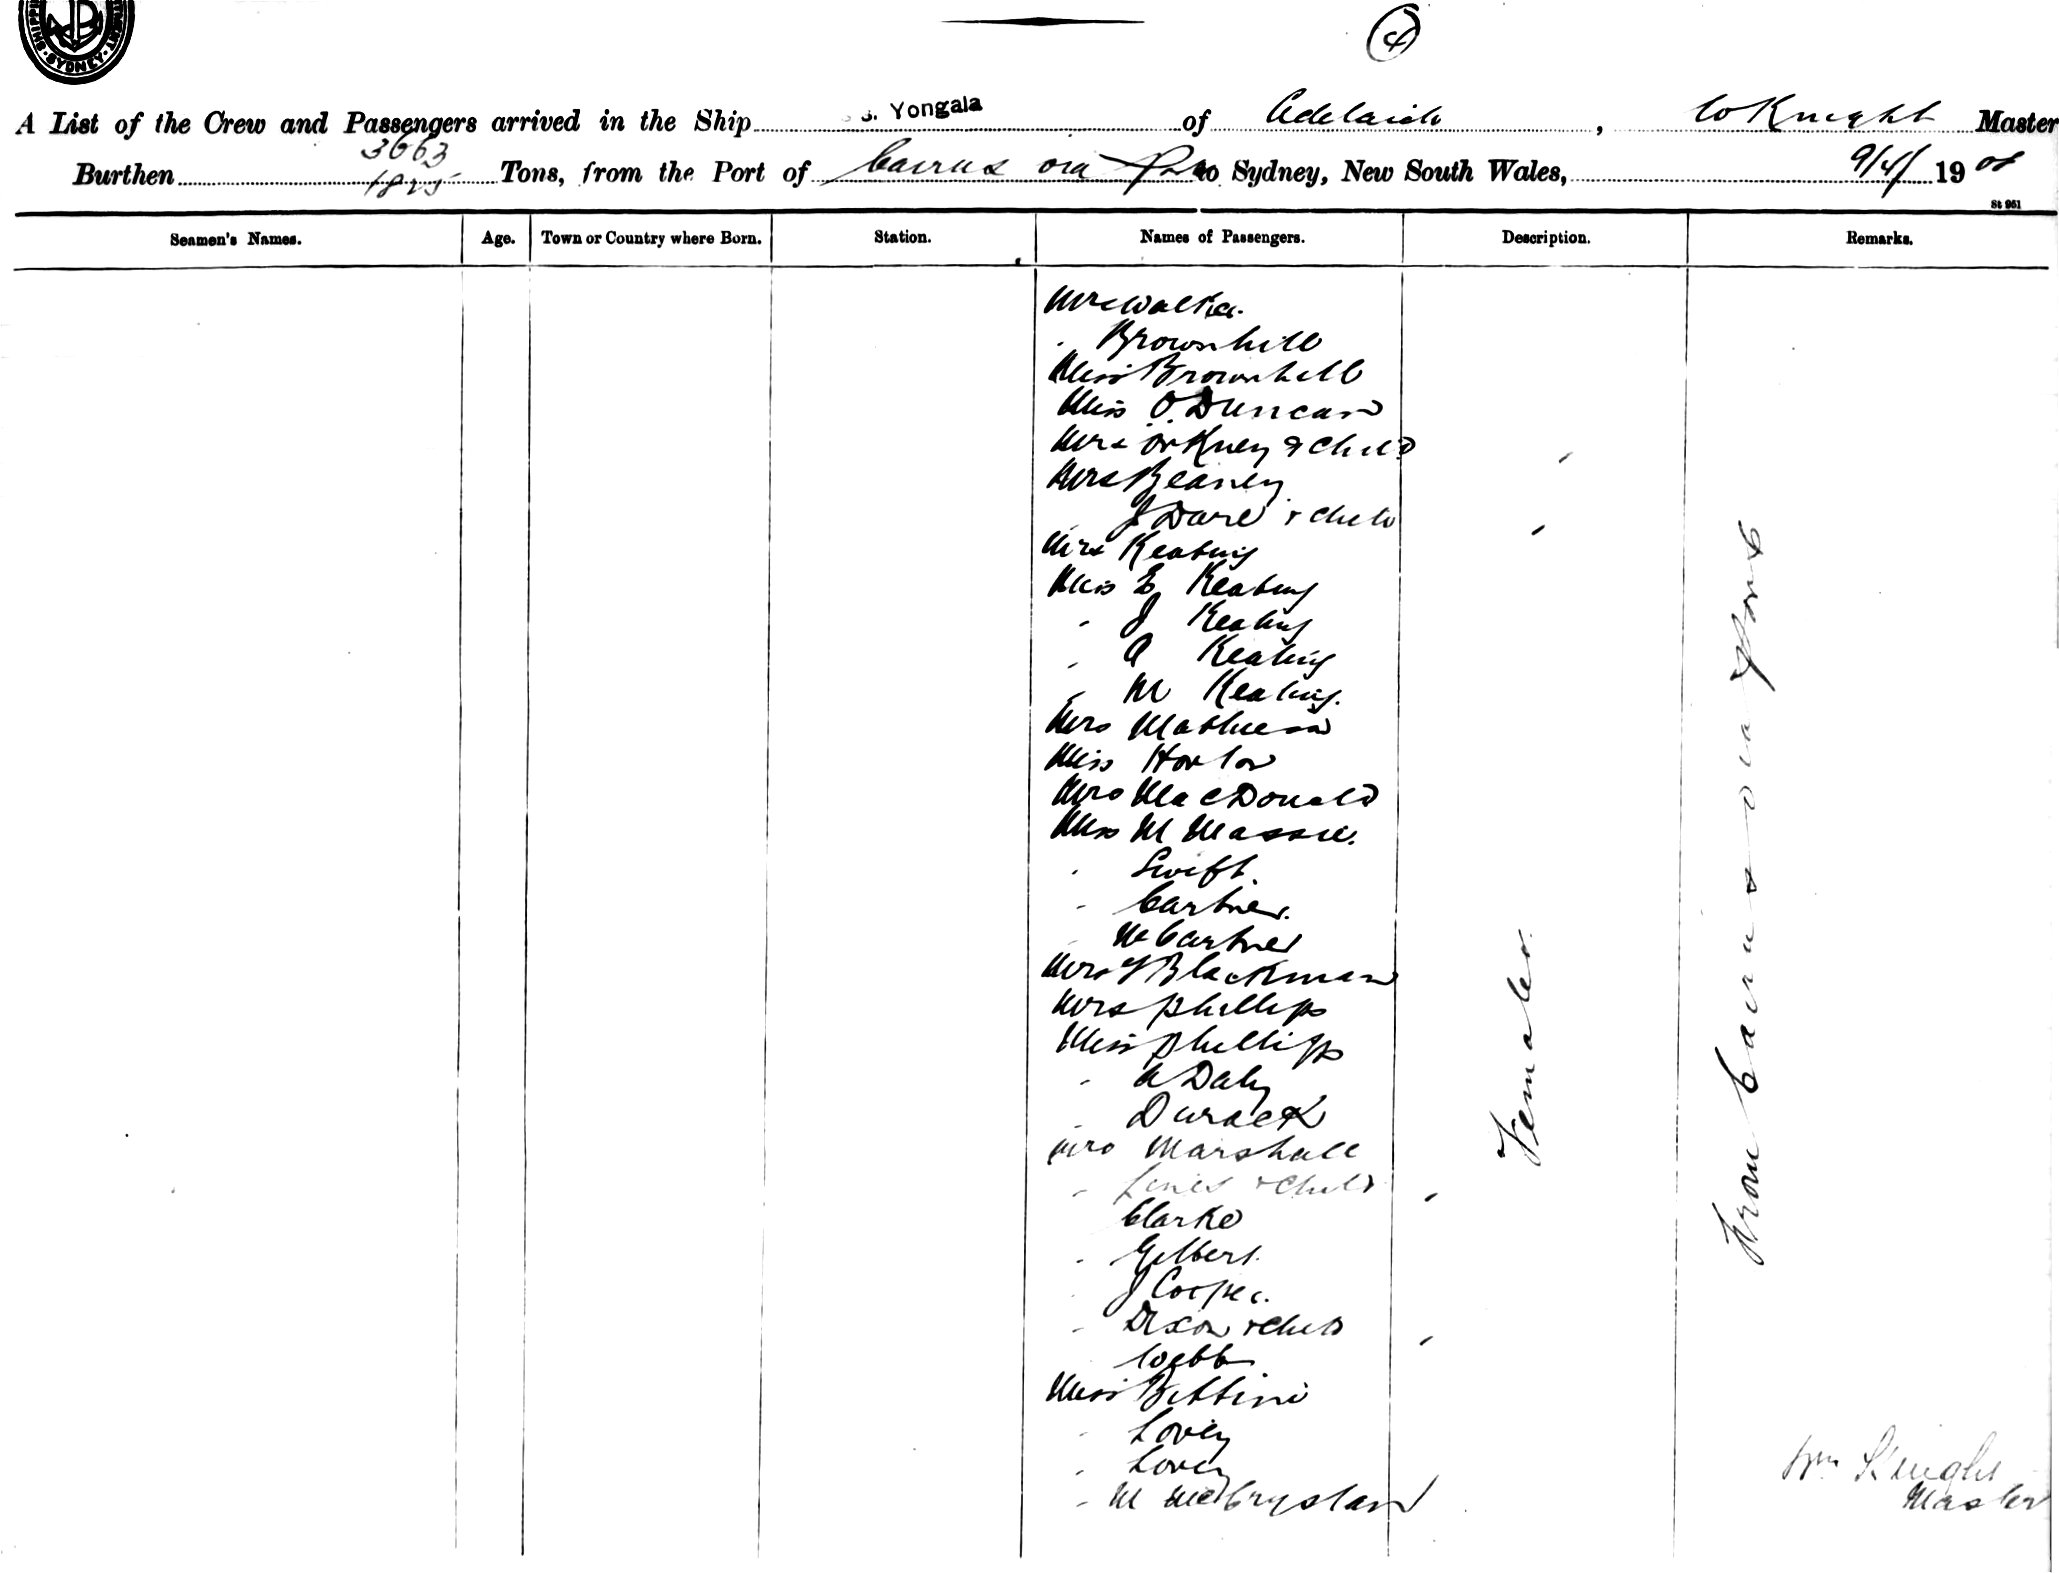 SYDNEY
4
A List of the Crew and Passengers arrived in the Ship S. Yongala of Adelaide, W Knight Master
Burthen 3663 1825 Tons, from the Port of Cairns via Ports to Sydney, New South Wales, 9/4/ 1908
St 951
Seamen's Names. Age. Town or Country where Born. Station. Names of Passengers. Description. Remarks.
Mrs Walker.
" Brownhill
Miss Brownhill
Miss O. Duncan
Mrs Orkney & Child
Mrs Beaney
J Dare & Child
Mrs Keating
Miss E Keating
" J Keating
" A Keating
" M Keating.
Mrs Matheson
Miss Horton
Mrs MacDonald
Miss M Massie.
" Swift.
" Cartner.
" M Cartner
Mrs Y Blackman
Mrs Phillips
Miss Phillips
" A Daly
" Durack
Mrs Marshall
" Lines & Child
Clarke
" Gilbert.
" J Cooper.
" Dixon & Child
Webb
Miss Bettini
" Lovey
" Lovey
" M
Females.
From Cairns via Ports
Wm Knight
Master